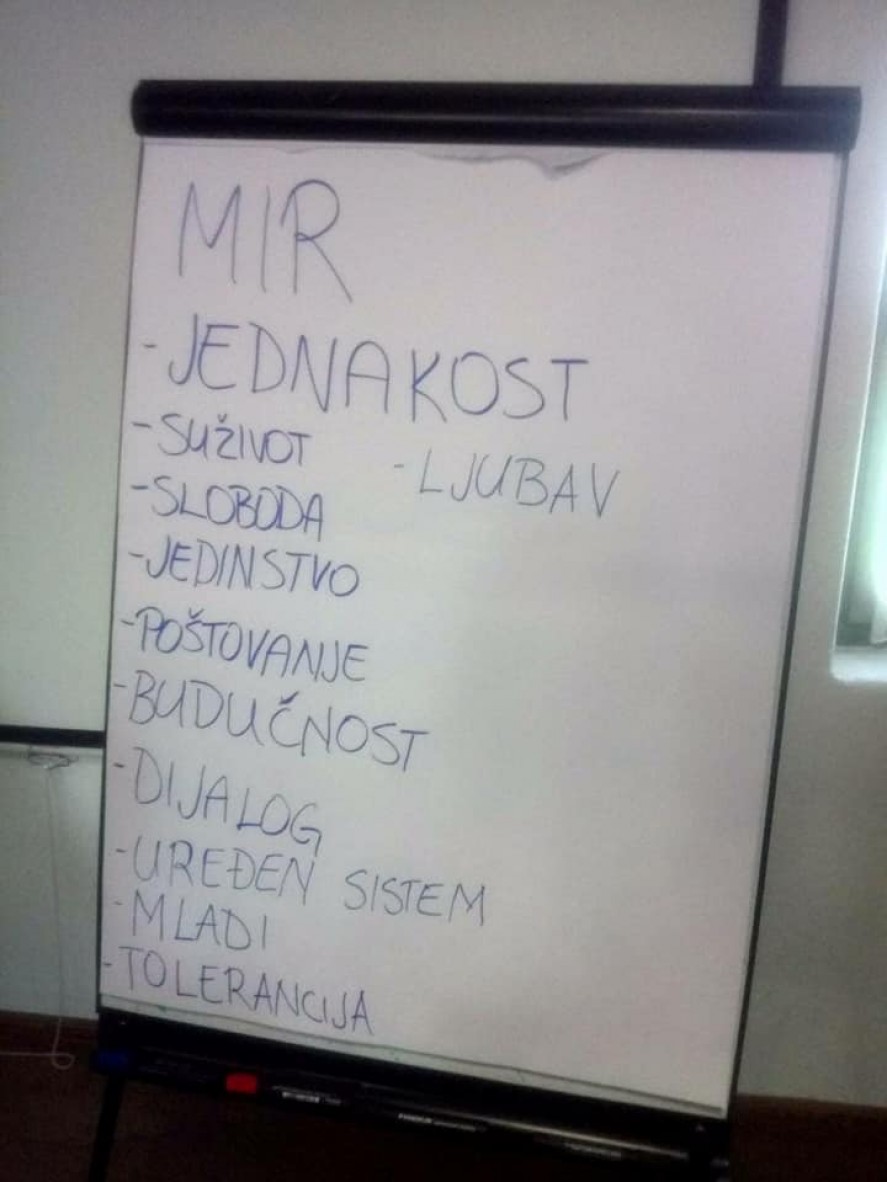 MIR
- JEDNAKOST
- SUŽIVOT
- LJUBAV
- SLOBODA
- JEDINSTVO
- POŠTOVANJE
- BUDUČNOST
- DIJALOG
- UREĐEN SISTEM
- MLADI
- TOLERANCIJA